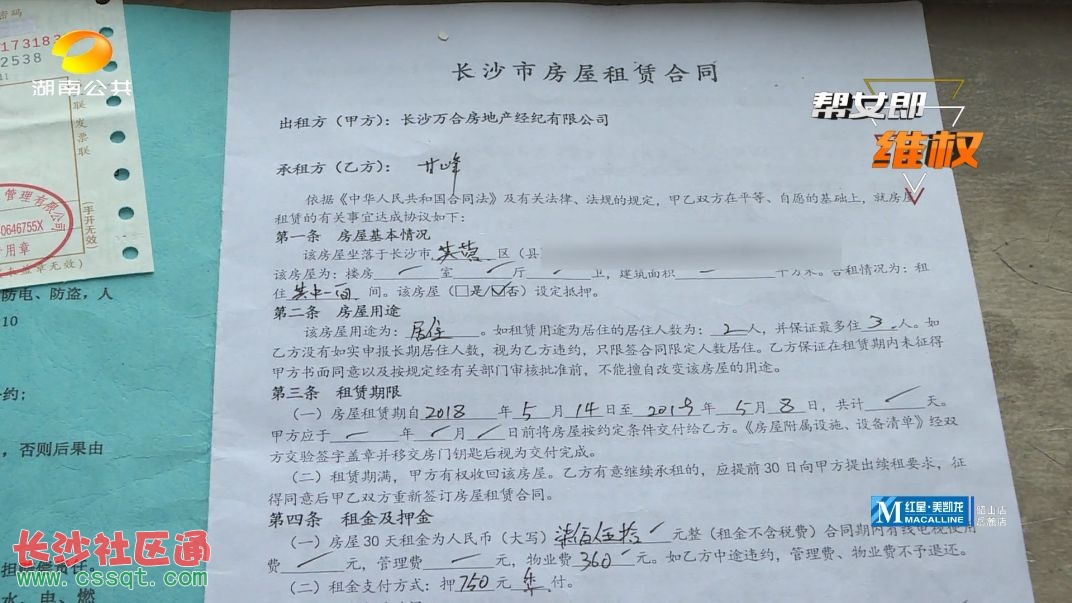 密码
17183
2538
湖南公共
联
发
票
联
(手开无效)
管理有限公司
0646755X
用章
章无效)
防电、防盗，人
10
约；
，否则后果由
担赔偿责任。
水、电、燃
长沙社区通
www.cssqt.com
帮女郎
维权
长沙市房屋租赁合同
出租方（甲方）：长沙万合房地产经纪有限公司
承租方（乙方）： 甘峰
依据《中华人民共和国合同法》及有关法律、法规的规定，甲乙双方在平等、自愿的基础上，就房屋
租赁的有关事宜达成协议如下：
第一条 房屋基本情况
该房屋坐落于长沙市 芙蓉 区（县
该房屋为：楼房 室 厅 卫，建筑面积 平方米。合租情况为：租
住 其中一间 间。该房屋（□是/☑否）设定抵押。
第二条 房屋用途
该房屋用途为： 居住 。如租赁用途为居住的居住人数为： 2 人，并保证最多住 3 人。如
乙方没有如实申报长期居住人数，视为乙方违约，只限签合同限定人数居住。乙方保证在租赁期内未征得
甲方书面同意以及按规定经有关部门审核批准前，不能擅自改变该房屋的用途。
第三条 租赁期限
（一）房屋租赁期自 2018 年 5 月 14 日至 2019 年 5 月 8 日，共计 天。
甲方应于 年 月 日前将房屋按约定条件交付给乙方。《房屋附属设施、设备清单》经双
方交验签字盖章并移交房门钥匙后视为交付完成。
（二）租赁期满，甲方有权收回该房屋。乙方有意继续承租的，应提前30日向甲方提出续租要求，征
得同意后甲乙双方重新签订房屋租赁合同。
第四条 租金及押金
（一）房屋30天租金为人民币（大写） 柒佰伍拾 元整（租金不含税费）合同期内有线电视使用
费 元，管理费 元，物业费 360 元。如乙方中途违约，管理费、物业费不予退还。
（二）租金支付方式：押 750 元 年 付。
M 红星·美凯龙
MACALLINE
韶山店
岳麓店